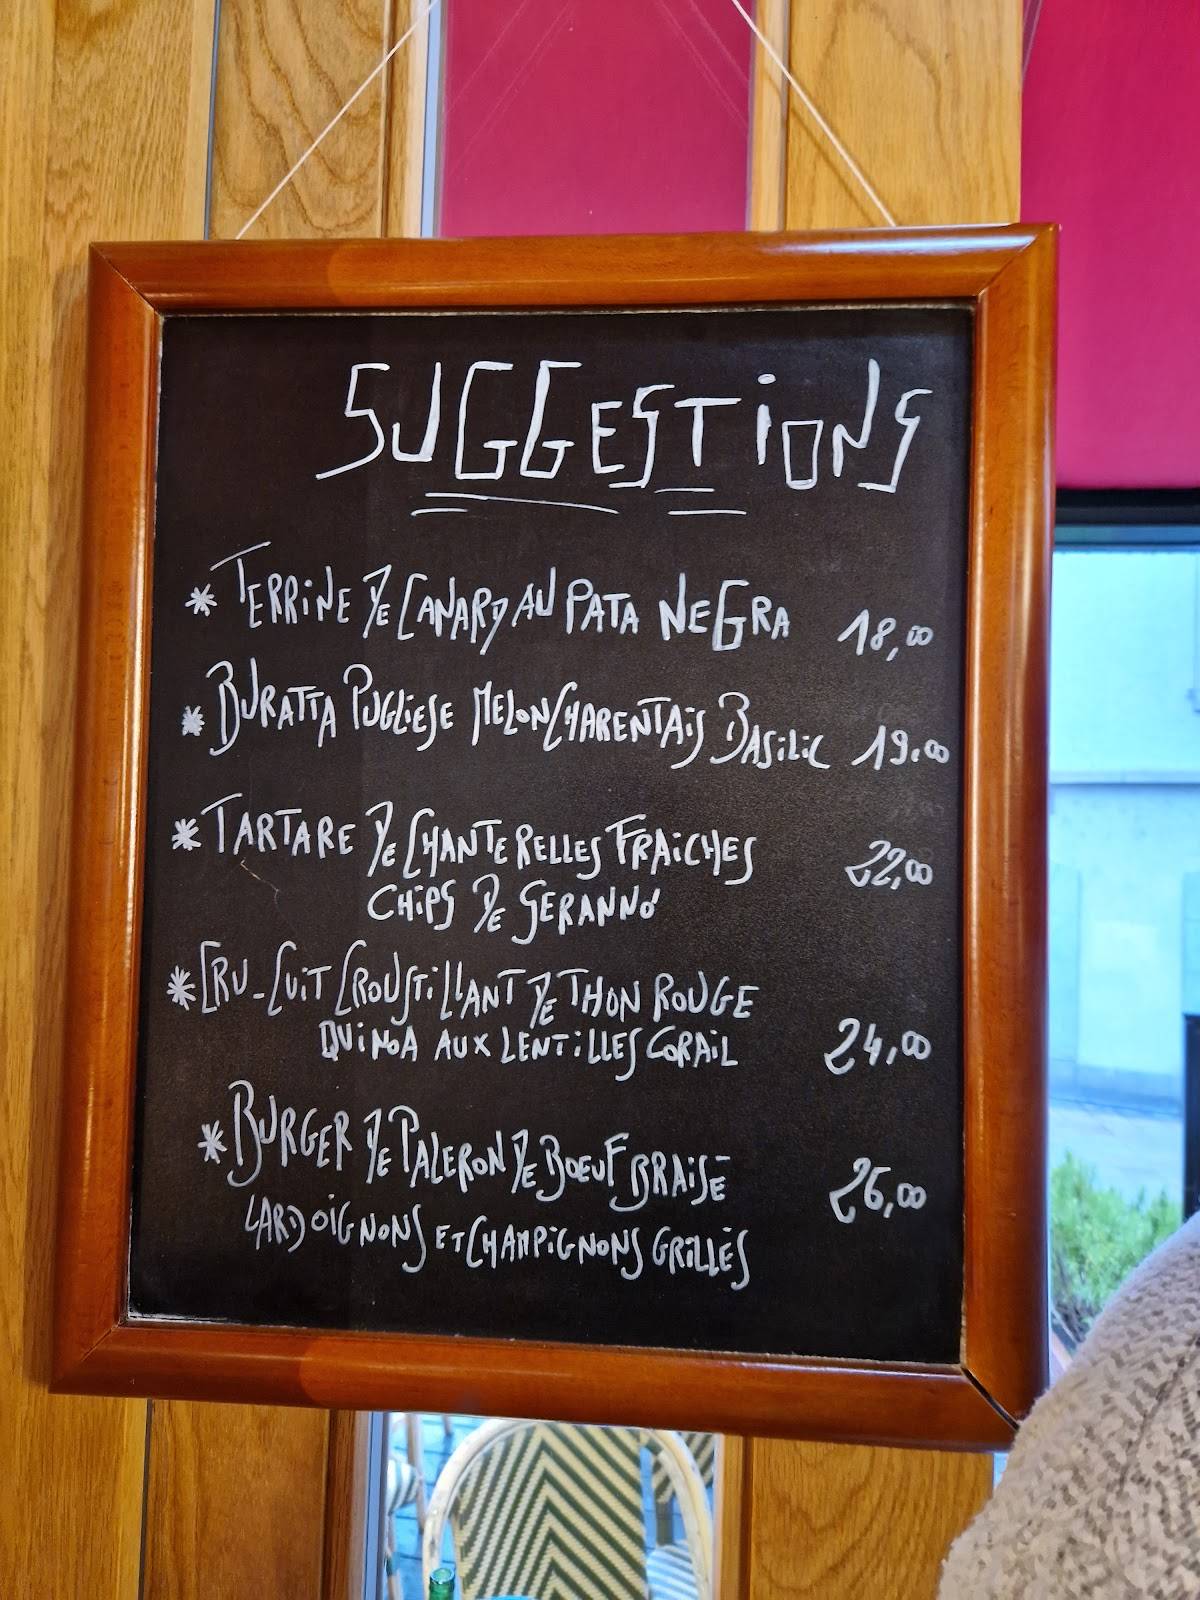 SUGGESTIONS
* TERRINE DE CANARD AU PATA NEGRA 18,00
* BURATTA PUGLIESE MELON CHARENTAIS BASILIC 19.00
* TARTARE DE CHANTERELLES FRAICHES 22,00
CHIPS DE SERANNO
* CRU-CUIT CROUSTILLANT DE THON ROUGE
QUINOA AUX LENTILLES CORAIL 24,00
* BURGER DE PALERON DE BOEUF BRAISÉ 26,00
LARD OIGNONS ET CHAMPIGNONS GRILLÉS